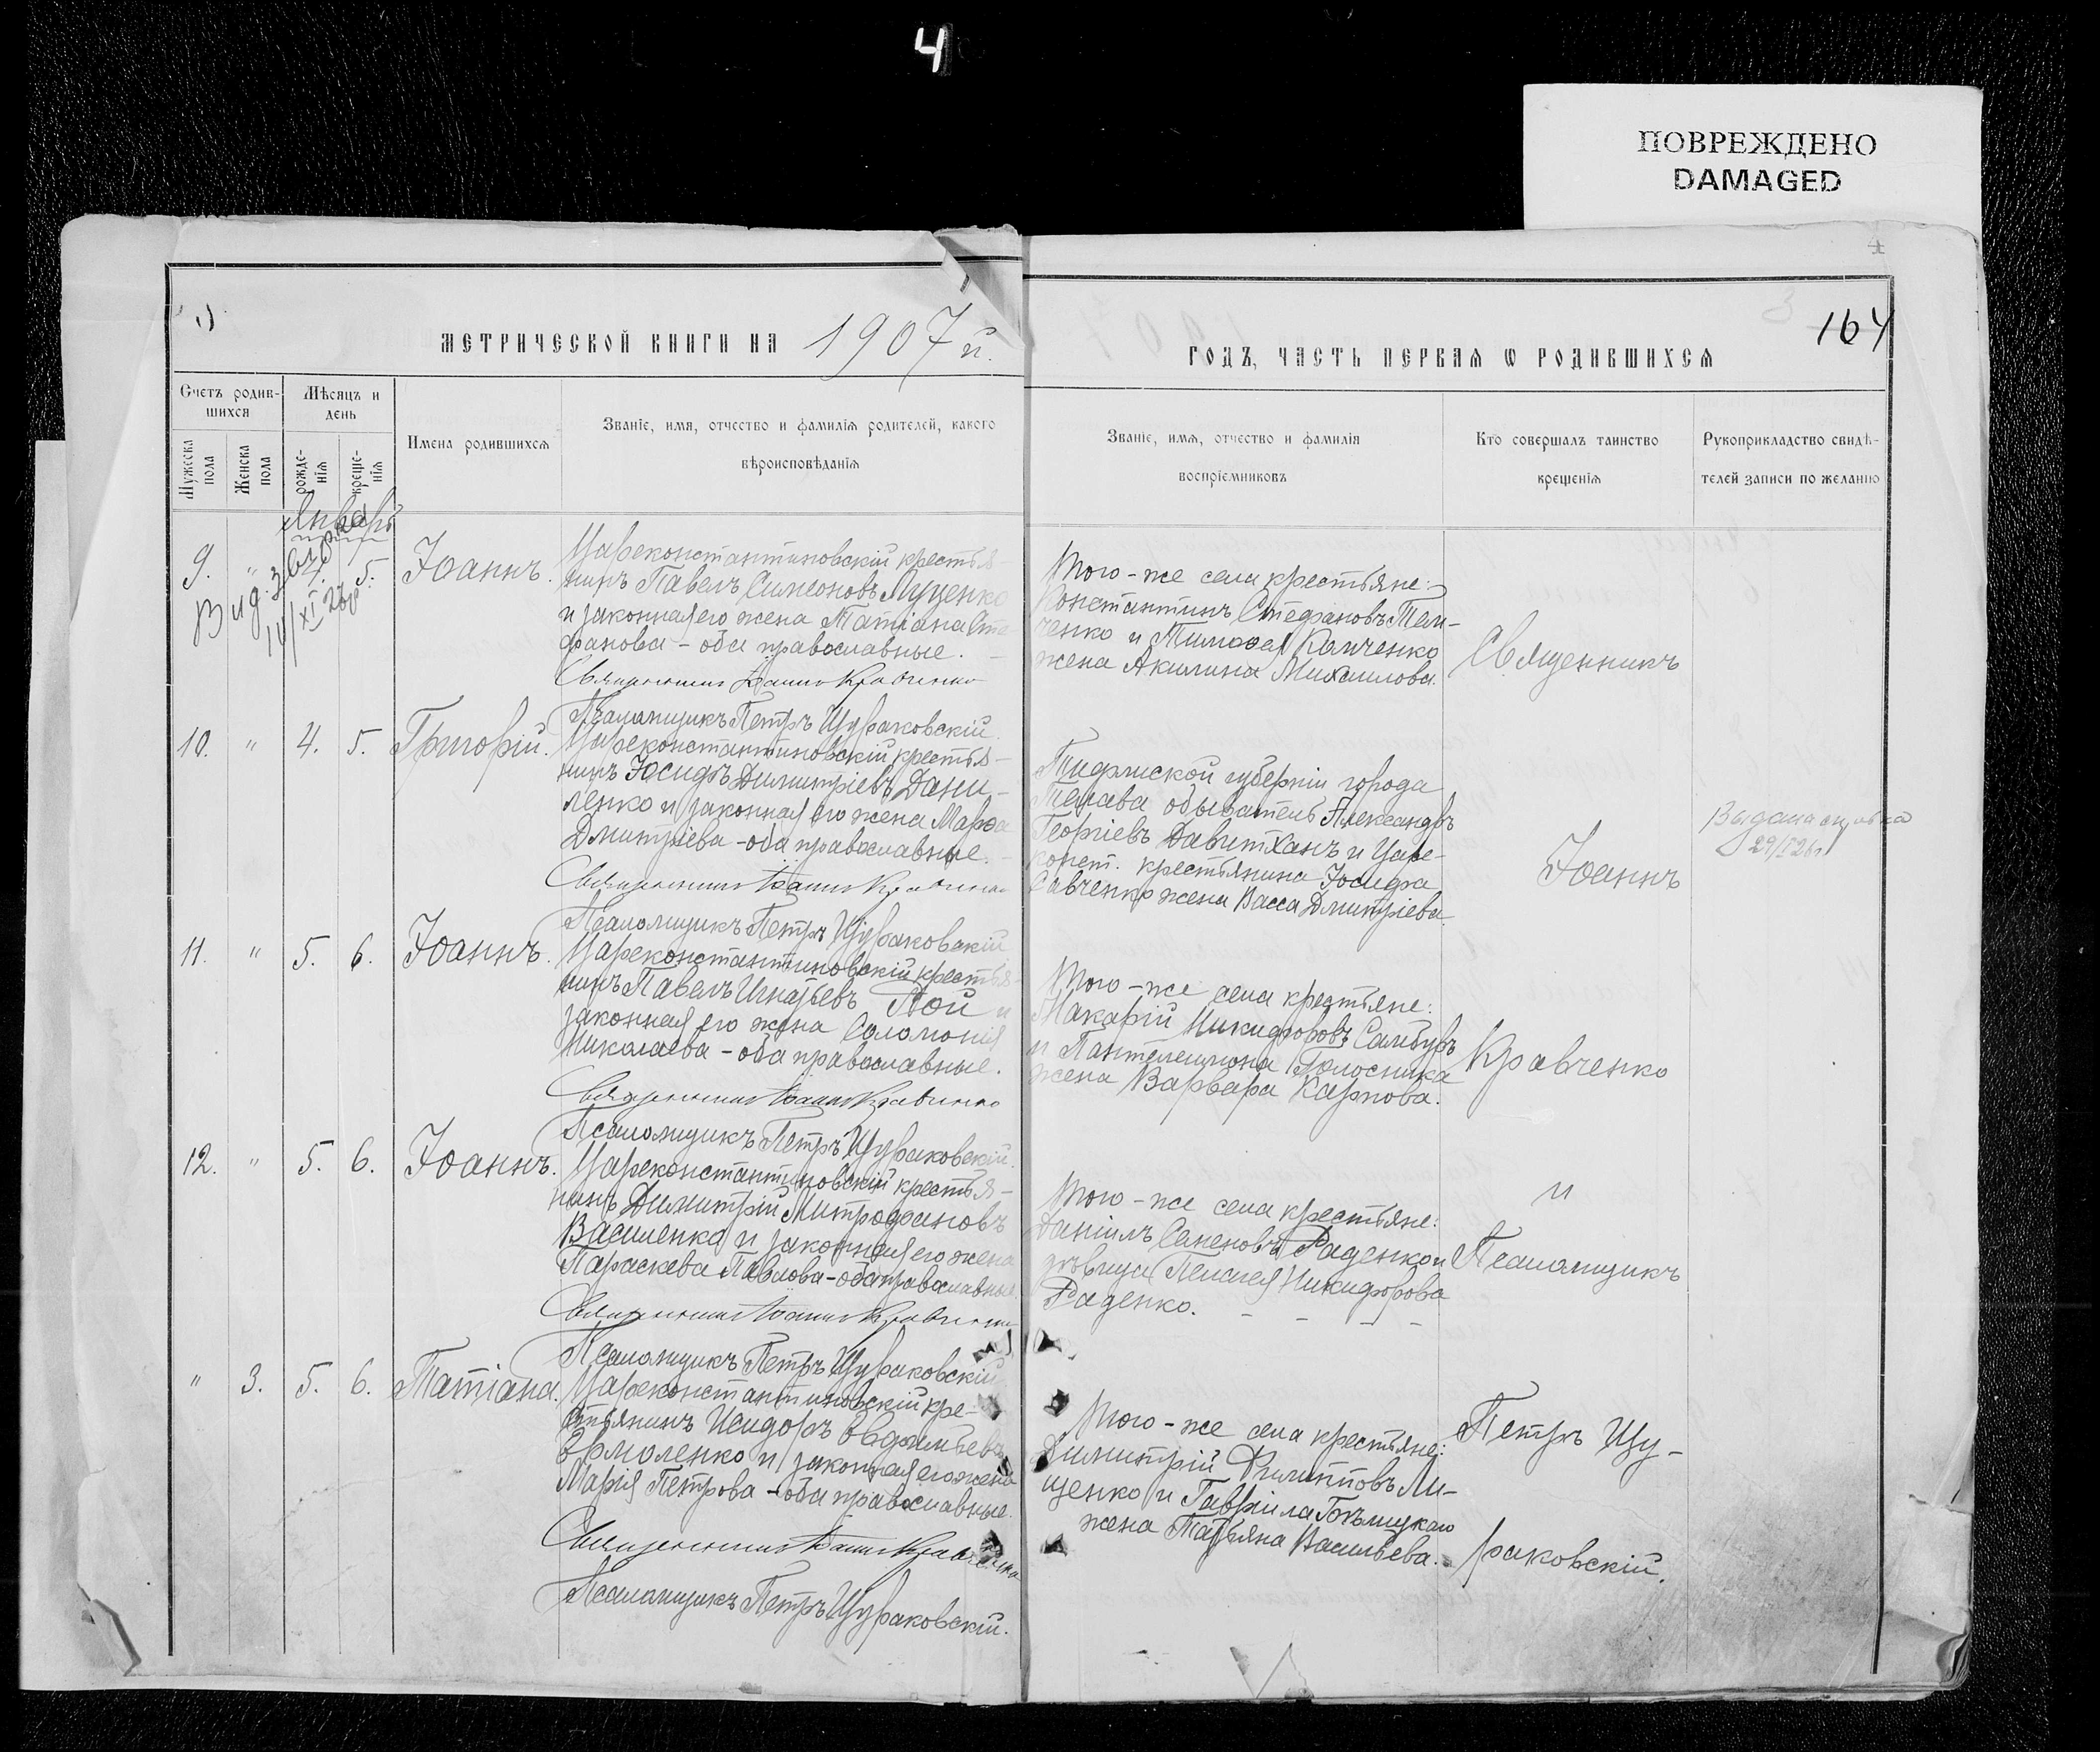 4
ПОВРЕЖДЕНО
DAMAGED
4
МЕТРИЧЕСКОЙ КНИГИ НА 1907 й.
Счетъ родив-
шихся
Мѣсяцъ и
день
Мужеска
пола
Женска
пола
рожде-
нія
креще-
нія
Имена родившихся
Званіе, имя, отчество и фамилія родителей, какого
вѣроисповѣданія
Январь
9. " 4. 5. Іоаннъ.
Вид.
14/XI 23
Цареконстантиновскій крестья-
нинъ Павелъ Симеоновъ Луценко
и законная его жена Татіана Сте-
фанова - оба православные.
Священникъ Іоаннъ Кравченко
Псаломщикъ Петръ Щураковскій.
10. " 4. 5. Григорій.
Цареконстантиновскій крестья-
нинъ Іосифъ Димитріевъ Дани-
ленко и законная его жена Марѳа
Дмитріева - оба православные.
Священникъ Іоаннъ Кравченко
Псаломщикъ Петръ Щураковскій
11. " 5. 6. Іоаннъ.
Цареконстантиновскій крестья-
нинъ Павелъ Игнатьевъ и
законная его жена Соломонія
Николаева - оба православные.
Священникъ Іоаннъ Кравченко
Псаломщикъ Петръ Щураковскій.
12. " 5. 6. Іоаннъ.
Цареконстантиновскій крестья-
нинъ Димитрій Митрофановъ
Василенко и законная его жена
Параскева Павлова - оба православные
Священникъ Іоаннъ Кравченко
Псаломщикъ Петръ Щураковскій
" 3. 5. 6. Татіана.
Цареконстантиновскій кре-
стьянинъ Исидоръ Евфимьевъ
Ермоленко и законная его жена
Марія Петрова - оба православные.
Священникъ Іоаннъ Кравченко
Псаломщикъ Петръ Щураковскій.
164
ГОДЪ, ЧАСТЬ ПЕРВАЯ Ѡ РОДИВШИХСЯ
Званіе, имя, отчество и фамилія
воспріемниковъ
Кто совершалъ таинство
крещенія
Рукоприкладство свидѣ-
телей записи по желанію
Того-же села крестьяне:
Константинъ Стефановъ Тем-
ченко и Тимоѳея Калченко
жена Акилина Михаилова.
Тифлиской губерніи города
Телава обыватель Александръ
Георгіевъ Давитханъ и Царе-
конст. крестьянина Іосифа
Савченко жена Васса Дмитріева.
Того-же села крестьяне:
Макарій Никифоровъ Самбуръ
и Пантелеимона Голосника
жена Варвара Карпова.
Того-же села крестьяне:
Даніилъ Семеновъ Раденко и
дѣвица Пелагея Никифорова
Раденко.
Того-же села крестьяне:
Димитрій Филипповъ Ли-
щенко и Гавріила Бѣлицкаго
жена Татьяна Васильева.
Священникъ
Іоаннъ
Кравченко
и
Псаломщикъ
Петръ Щу-
раковскій.
Выдана
29/I 26 г.